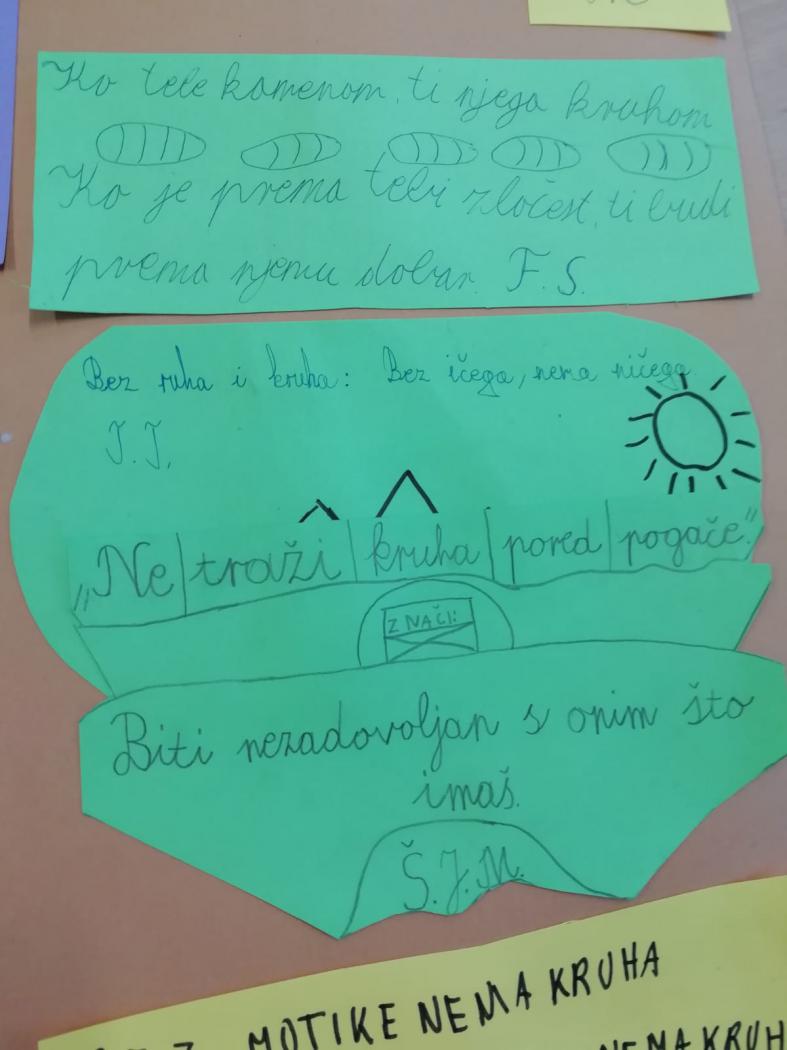 Ko tebe kamenom, ti njega kruhom
Ko je prema tebi zločest, ti budi
prema njemu dobar. F.S.
Bez ruha i kruha: Bez ičega, nema ničega.
J.J.
„Ne traži kruha pored pogače."
ZNAČI:
Biti nezadovoljan s onim što
imaš.
Š.J.M.
MOTIKE NEMA KRUHA
NEMA KRUH